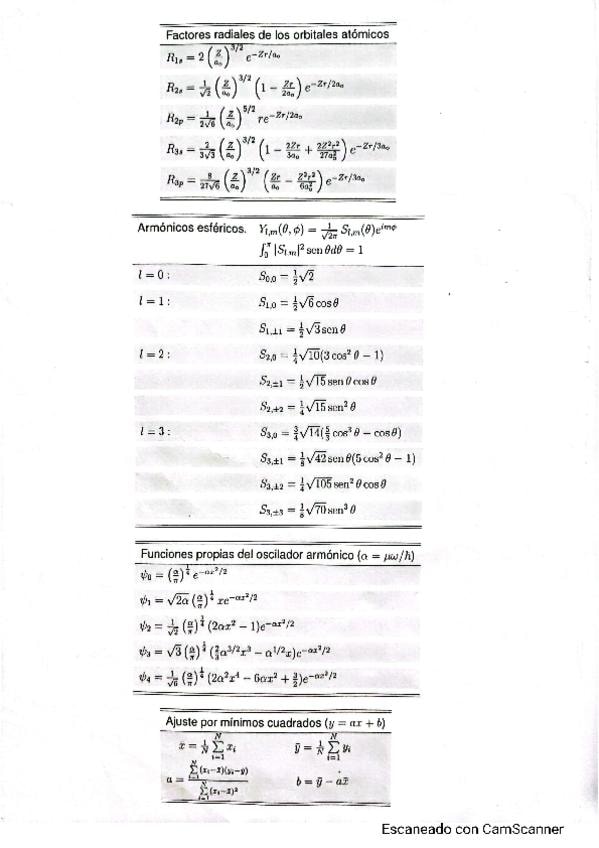 Factores radiales de los orbitales atómicos
R₁ₛ = 2 (Z/a₀)^{3/2} e^{-Zr/a₀}
R₂ₛ = 1/√2 (Z/a₀)^{3/2} (1 − Zr/2a₀) e^{-Zr/2a₀}
R₂ₚ = 1/(2√6) (Z/a₀)^{5/2} re^{-Zr/2a₀}
R₃ₛ = 2/(3√3) (Z/a₀)^{3/2} (1 − 2Zr/3a₀ + 2Z²r²/27a₀²) e^{-Zr/3a₀}
R₃ₚ = 8/(27√6) (Z/a₀)^{3/2} (Zr/a₀ − Z²r²/6a₀²) e^{-Zr/3a₀}
Armónicos esféricos. Y_{l,m}(θ, ϕ) = 1/√2π S_{l,m}(θ)e^{imϕ}
∫₀^π |S_{l,m}|² sen θdθ = 1
l = 0 : S_{0,0} = 1/2 √2
l = 1 : S_{1,0} = 1/2 √6 cos θ
S_{1,±1} = 1/2 √3 sen θ
l = 2 : S_{2,0} = 1/4 √10(3 cos² θ − 1)
S_{2,±1} = 1/2 √15 sen θ cos θ
S_{2,±2} = 1/4 √15 sen² θ
l = 3 : S_{3,0} = 3/4 √14(5/3 cos³ θ − cos θ)
S_{3,±1} = 1/8 √42 sen θ(5 cos² θ − 1)
S_{3,±2} = 1/4 √105 sen² θ cos θ
S_{3,±3} = 1/8 √70 sen³ θ
Funciones propias del oscilador armónico (α = μω/ℏ)
ψ₀ = (α/π)^{1/4} e^{-αx²/2}
ψ₁ = √2α (α/π)^{1/4} xe^{-αx²/2}
ψ₂ = 1/√2 (α/π)^{1/4} (2αx² − 1)e^{-αx²/2}
ψ₃ = √3 (α/π)^{1/4} (2/3 α^{3/2}x³ − α^{1/2}x)e^{-αx²/2}
ψ₄ = 1/√6 (α/π)^{1/4} (2α²x⁴ − 6αx² + 3/2)e^{-αx²/2}
Ajuste por mínimos cuadrados (y = ax + b)
x̄ = 1/N ∑_{i=1}^{N} xᵢ ȳ = 1/N ∑_{i=1}^{N} yᵢ
a = ∑_{i=1}^{N}(xᵢ−x̄)(yᵢ−ȳ) / ∑_{i=1}^{N}(xᵢ−x̄)² b = ȳ − ax̄
Escaneado con CamScanner